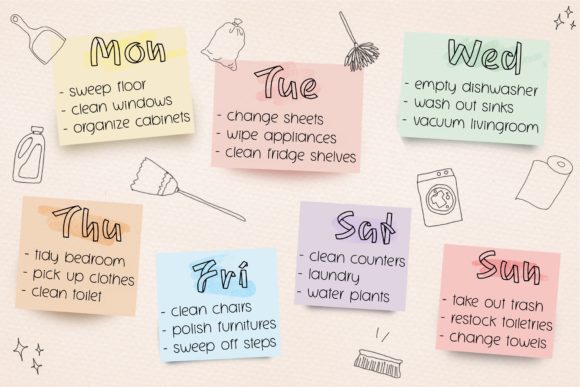 Mon
- sweep floor
- clean windows
- organize cabinets
Tue
- change sheets
- wipe appliances
- clean fridge shelves
Wed
- empty dishwasher
- wash out sinks
- vacuum livingroom
Thu
- tidy bedroom
- pick up clothes
- clean toilet
Fri
- clean chairs
- polish furnitures
- sweep off steps
Sat
- clean counters
- laundry
- water plants
Sun
- take out trash
- restock toiletries
- change towels